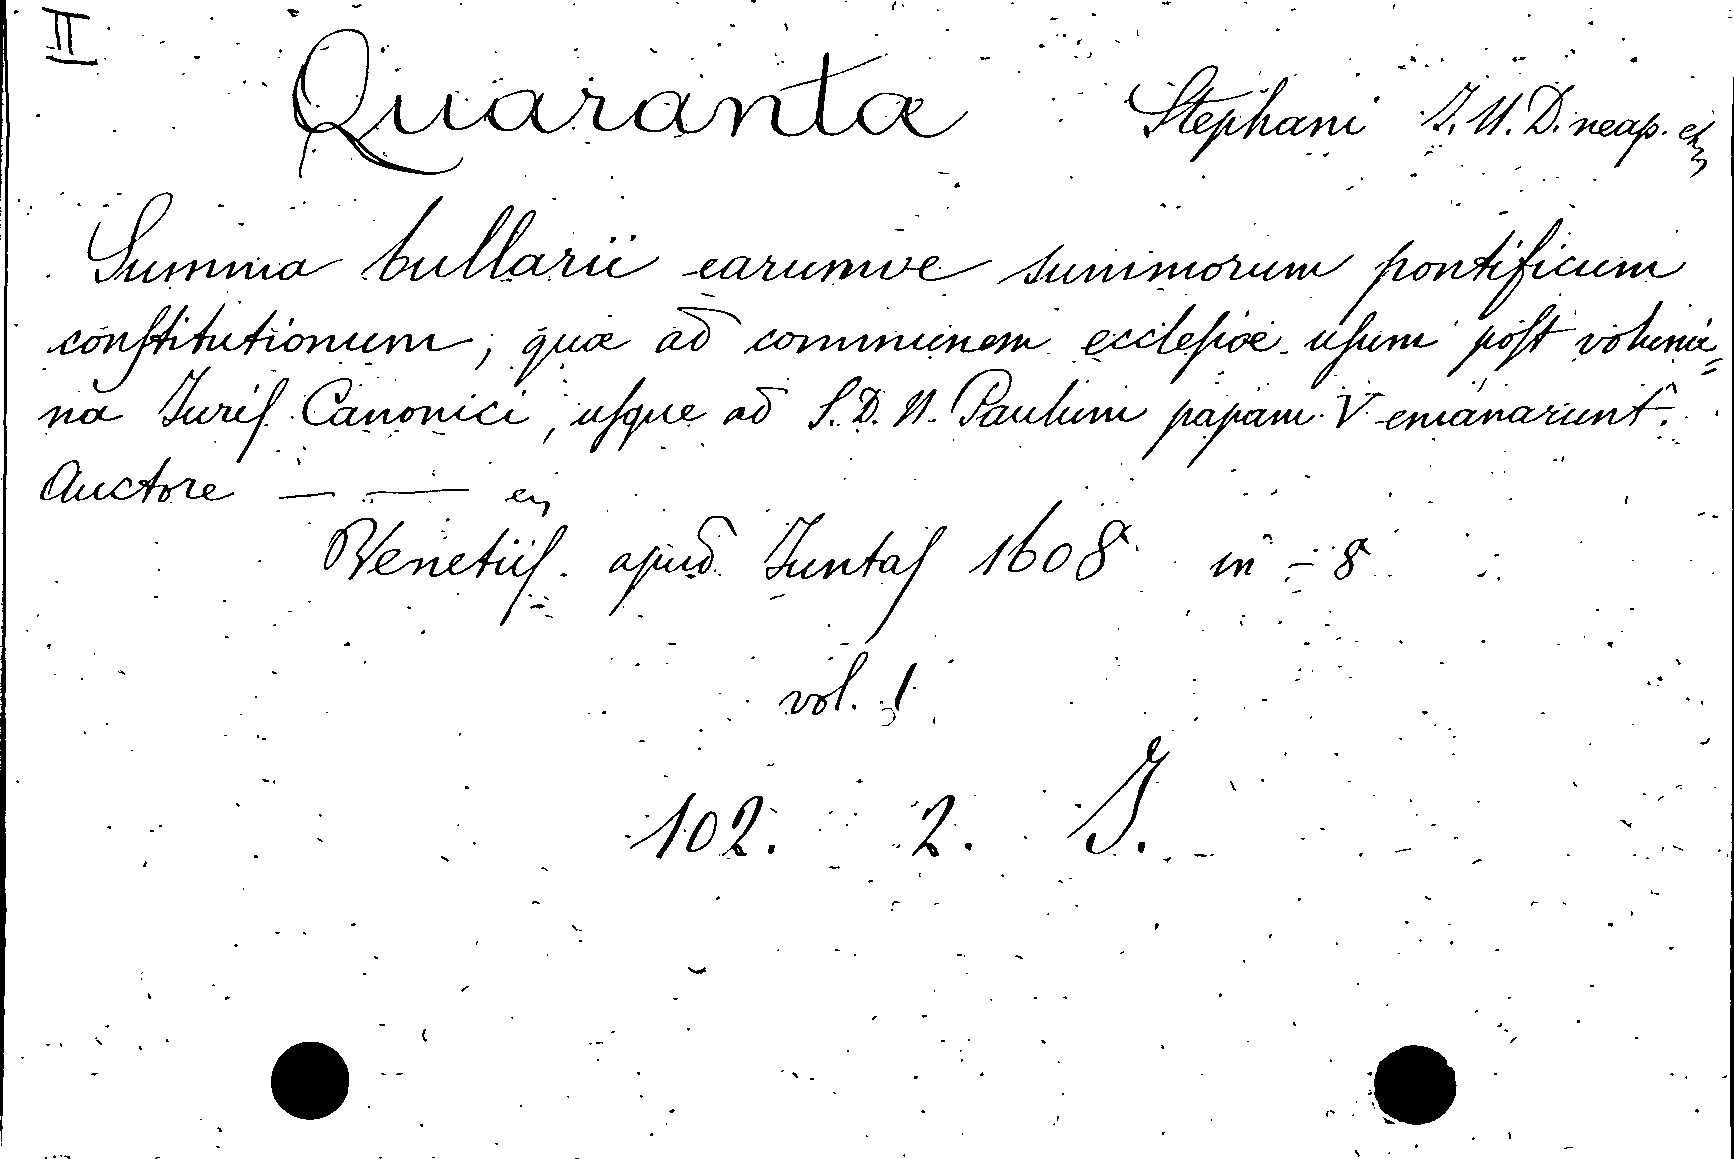 II
Quaranta Stephani J. U. D. neap. etz
Summa bullarii earumve summorum pontificum
conſtitutionum, quæ ad communem eccleſiæ uſum poſt volumi=
na Juriſ Canonici, uſque ad S. D. N. Paulum papam V emanarunt.
Auctore — —
Venetiiſ. apud Juntaſ 1608 in - 8
vol. 1
102. 2. J.